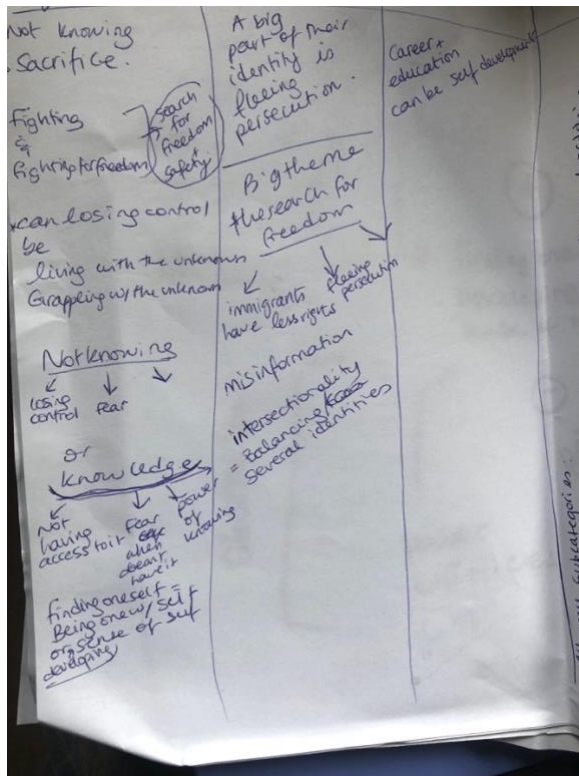 Not Knowing
. Sacrifice.
Fighting
&
Fighting for freedom
search
for
freedom
+
safety
*can losing control
be
living with the unknown
Grappling w/ the unknown
Not knowing
losing
control
fear
or
Knowledge
Not
having
access to it
fear
when
doesn't
have it
power
of
knowing
finding oneself =
Being one w/ self
or sense of self
developing
A big
part of their
identity is
fleeing
persecution.
Big theme
the search for
freedom
immigrants
have less rights
fleeing
persecution
misinformation
intersectionality
= Balancing
several identities
Career +
education
can be self development
subcategories: